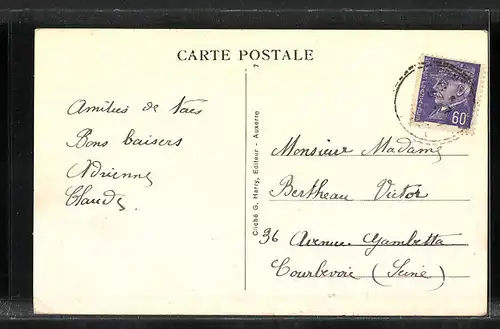 CARTE POSTALE
Amitiés de tous
Bons baisers
Adrienne
Claude
Cliché G. Harry, Editeur - Auxerre
7
60
Monsieur Madame
Bertheau Victor
36 Avenue Gambetta
Courbevoie (Seine)